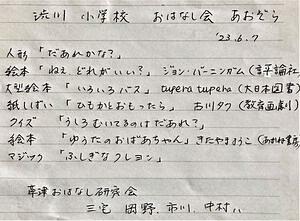 渋川 小学校 おはなし会 あおぞら
'23.6.7
人形「だあれかな?」
絵本「ねえ、どれがいい?」ジョン・バーニンガム(評論社)
大型絵本「いろいろバス」tupera tupera(大日本図書)
紙しばい「ひもかとおもったら」古川タク(教育画劇)
クイズ「うしろむいてるのはだあれ?」
絵本「ゆうたのおばあちゃん」きたやまようこ(あかね書房)
マジック「ふしぎなクレヨン」
草津おはなし研究会
三宅 岡野、市川、中村